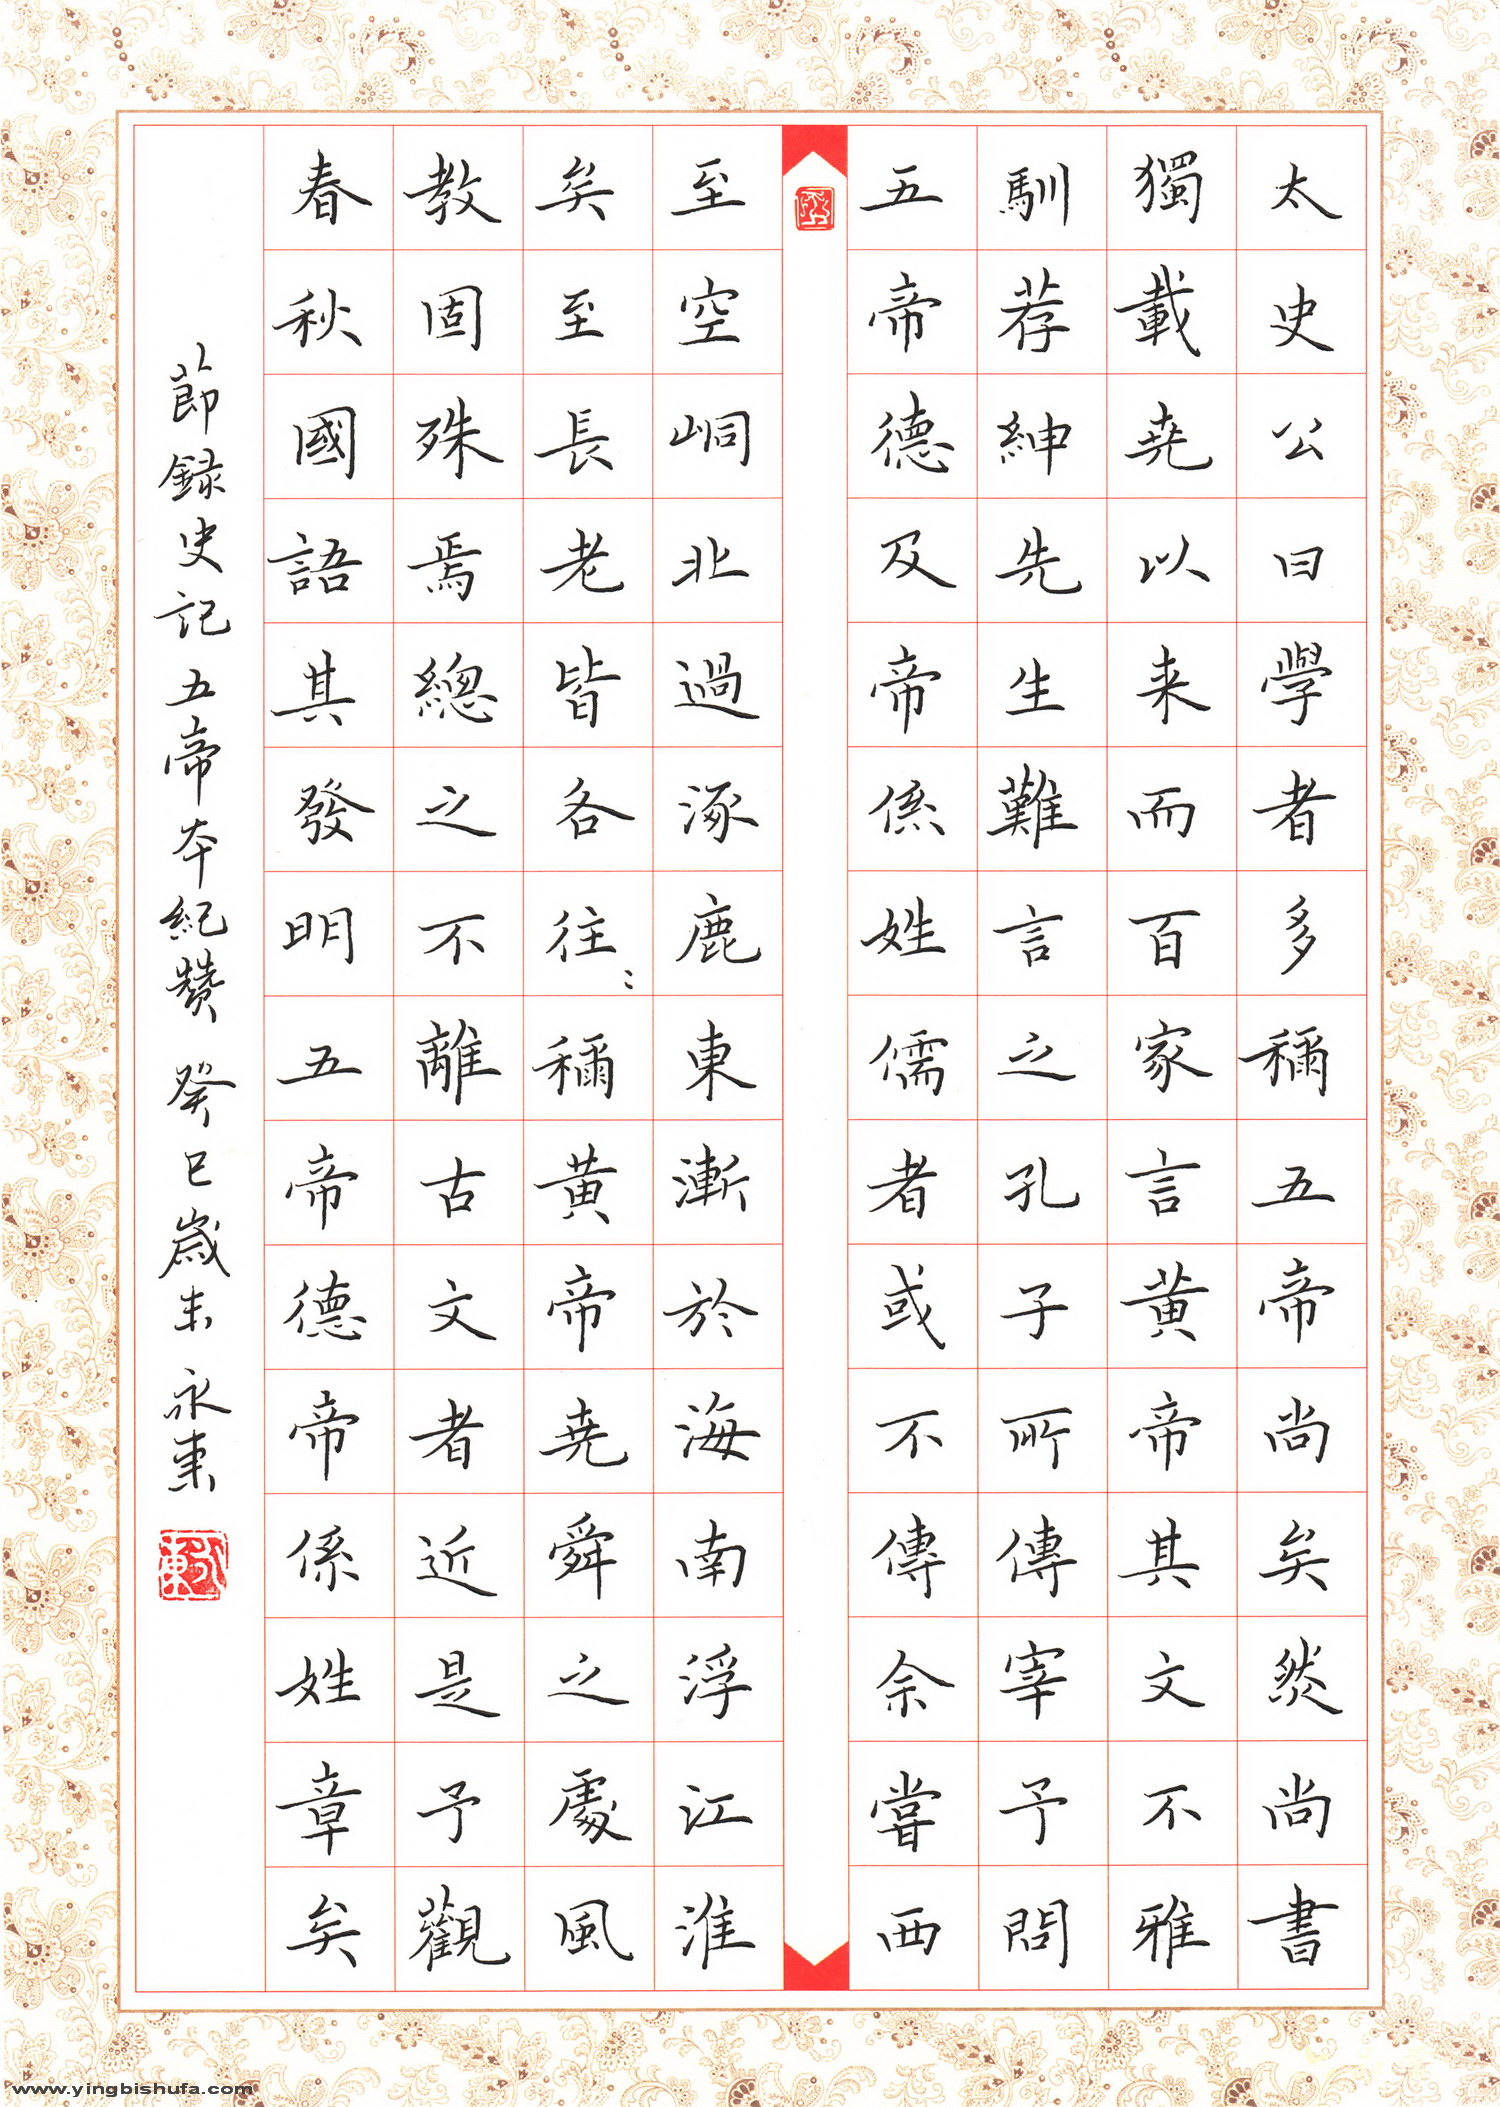 太史公曰學者多稱五帝尚矣然尚書
獨載堯以来而百家言黄帝其文不雅
馴荐紳先生難言之孔子所傳宰予問
五帝德及帝係姓儒者或不傳余嘗西
至空峒北過涿鹿東漸於海南浮江淮
矣至長老皆各往〻稱黄帝堯舜之處風
教固殊焉總之不離古文者近是予觀
春秋國語其發明五帝德帝係姓章矣
節録史記五帝本紀贊 癸巳歲末 永東
www.yingbishufa.com